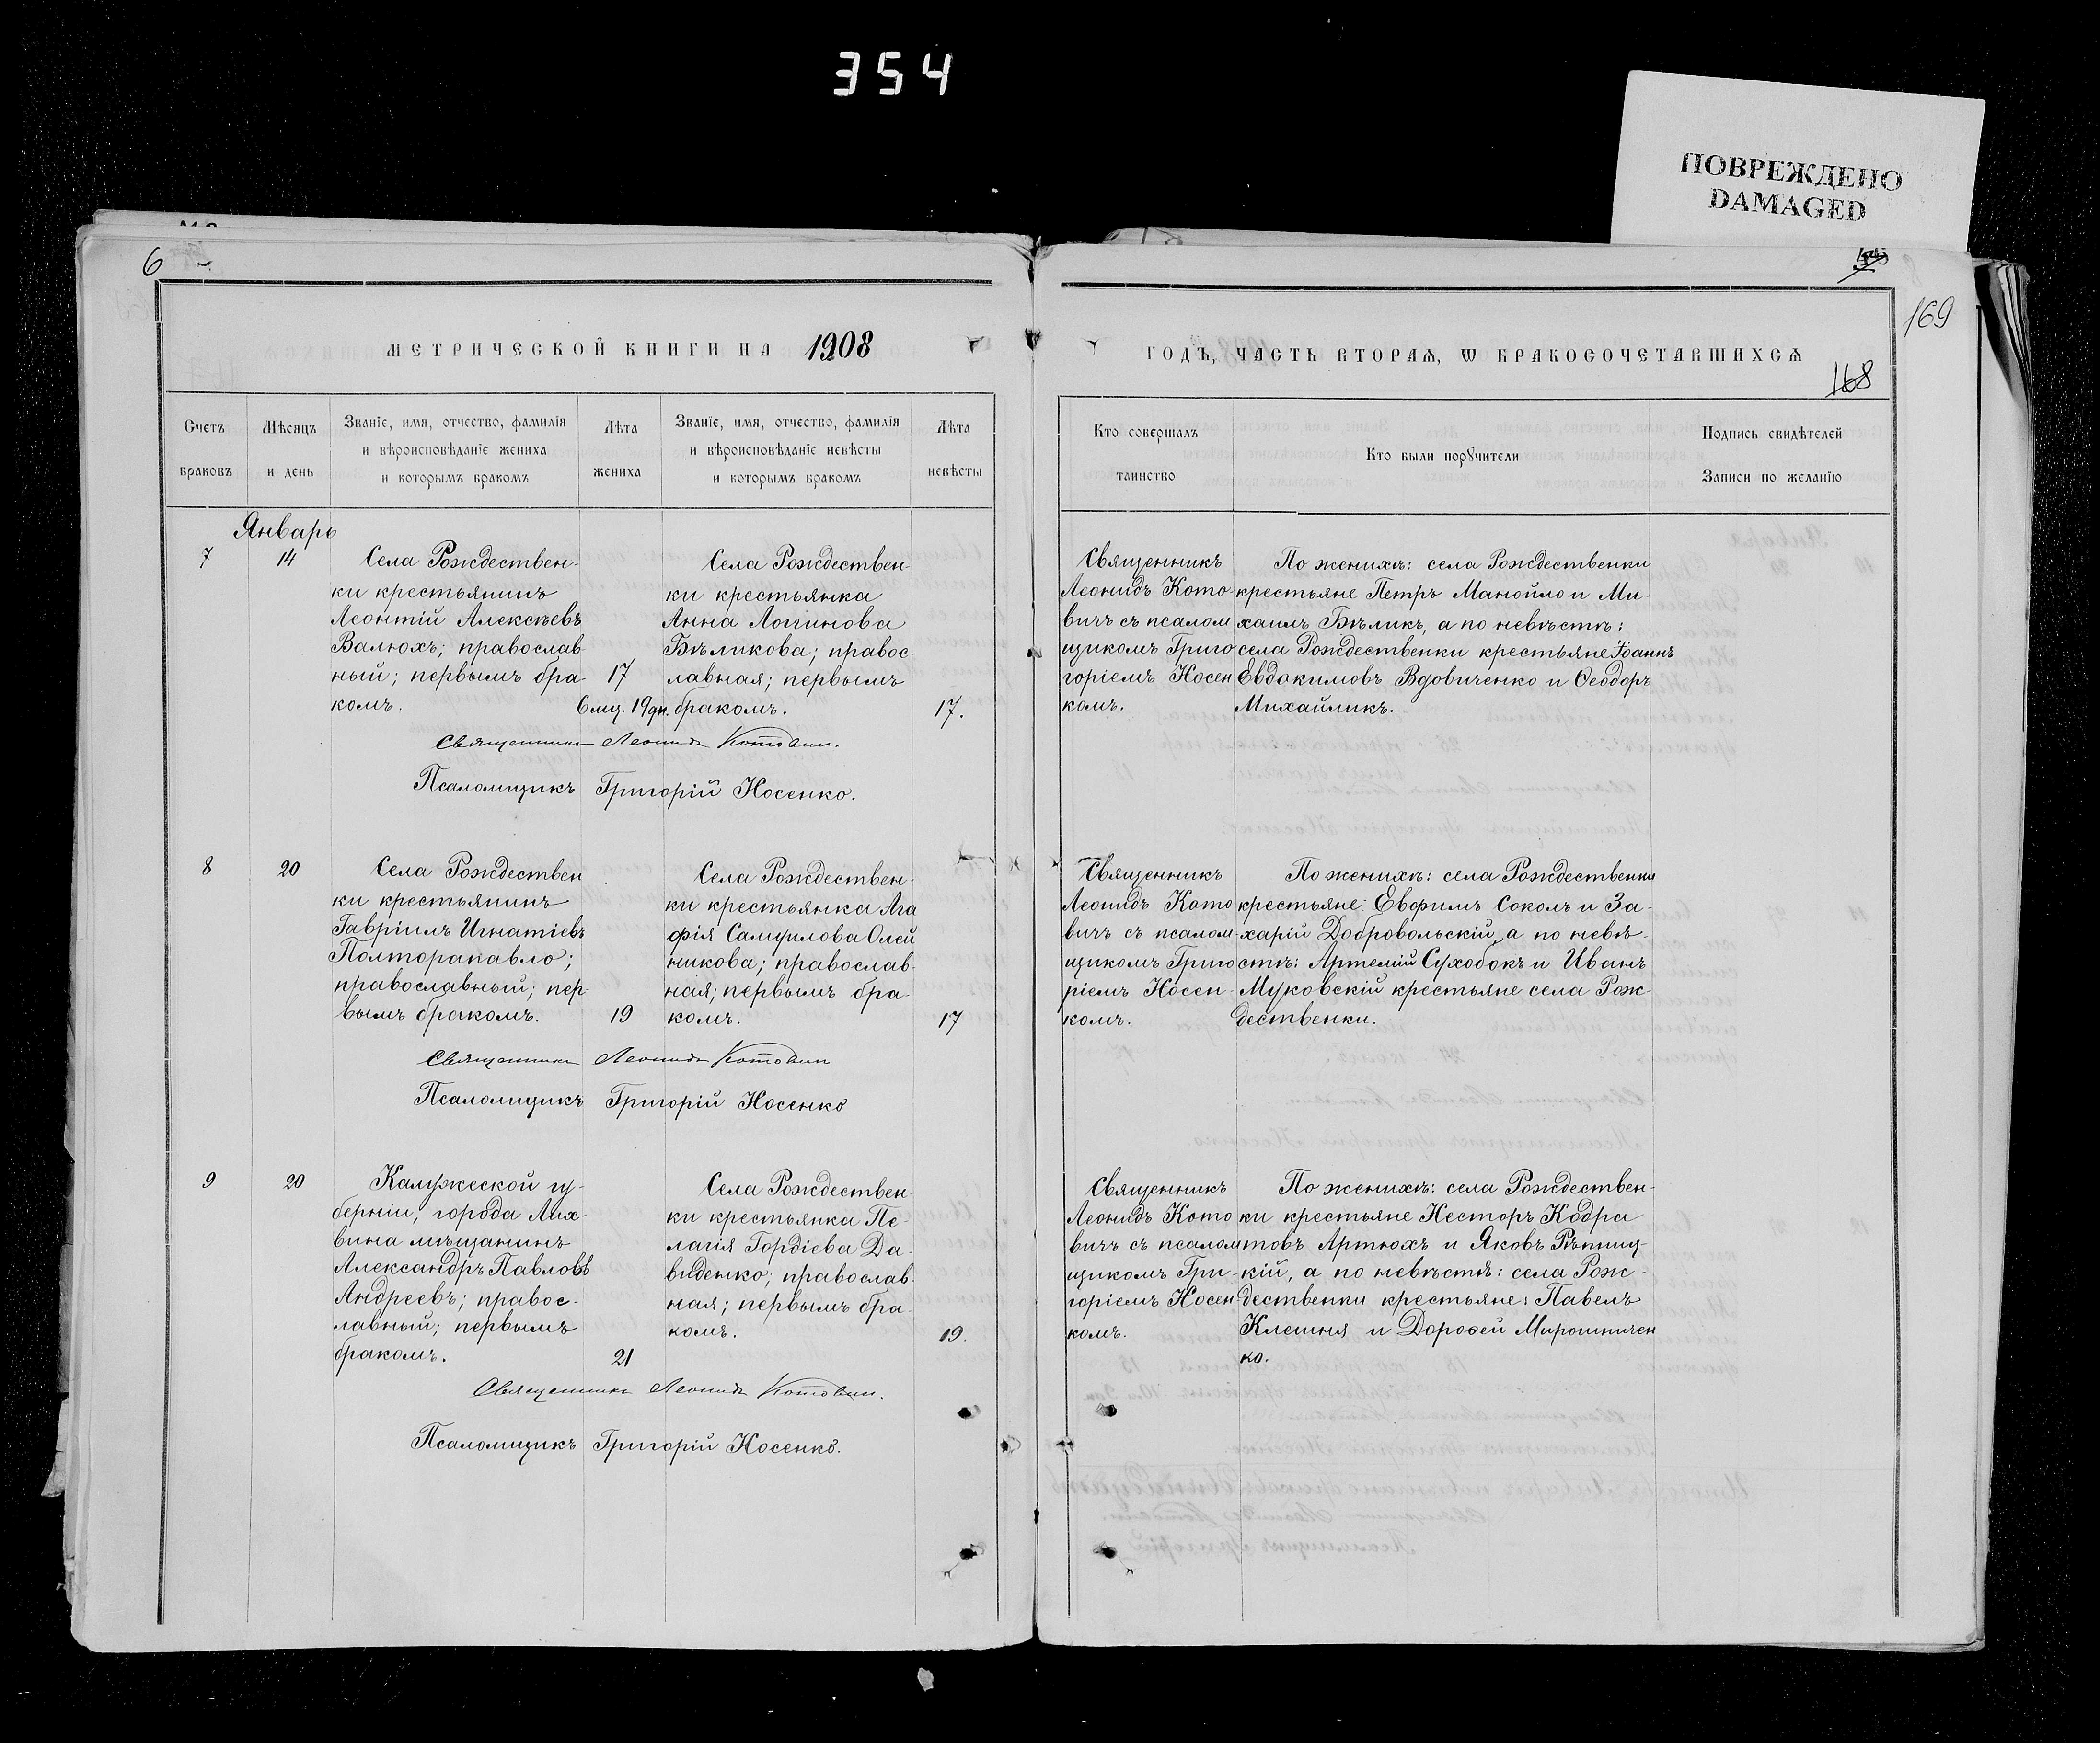 354
ПОВРЕЖДЕНО
DAMAGED
6
169
168
МЕТРИЧЕСКОЙ КНИГИ НА 1908
ГОДЪ, ЧАСТЬ ВТОРАѦ, Ѡ БРАКОСОЧЕТАВШИХСѦ
Счетъ
браковъ
Мѣсяцъ
и день
Званіе, имя, отчество, фамилія
и вѣроисповѣданіе жениха
и которымъ бракомъ
Лѣта
жениха
Званіе, имя, отчество, фамилія
и вѣроисповѣданіе невѣсты
и которымъ бракомъ
Лѣта
невѣсты
Кто совершалъ
таинство
Кто были порꙋчители
Подпись свидѣтелей
Записи по желанію
Январь
7
14
Села Рождествен-
ки крестьянинъ
Леонтій Алексѣевъ
Валюхъ; православ
ный; первымъ бра-
комъ.
17
6 мц. 19 дн.
Села Рождествен-
ки крестьянка
Анна Логинова
Бѣликова; правос-
лавная; первымъ
бракомъ.
17.
Священникъ
Леонидъ Кото
вичъ съ псалом
щикомъ Григо
горіемъ Носен
комъ.
По женихѣ: села Рождественки
крестьяне Петръ Манойло и Ми-
хаилъ Бѣликъ, а по невѣстѣ:
села Рождественки крестьяне Іоаннъ
Евдокимовъ Вдовиченко и Ѳеодоръ
Михайликъ.
Священникъ Леонидъ Котовичъ.
Псаломщикъ Григорій Носенко.
8
20
Села Рождествен
ки крестьянинъ
Гавріилъ Игнатіевъ
Полторапавло;
православный; пер-
вымъ бракомъ.
19
Села Рождествен-
ки крестьянка Ага
фія Самуилова Олей
никова; православ-
ная; первымъ бра-
комъ.
17
Священникъ
Леонидъ Кото
вичъ съ псалом-
щикомъ Григо
ріемъ Носен-
комъ.
По женихѣ: села Рождественки
крестьяне: Евфимъ Соколъ и За-
харій Добровольскій, а по невѣ-
стѣ: Артемій Суходокъ и Иванъ
Муковскій крестьяне села Рож
дественки.
Священникъ Леонидъ Котовичъ
Псаломщикъ Григорій Носенко
9
20
Калужеской гу-
берніи, города Лих-
вина мѣщанинъ
Александръ Павловъ
Андреевъ; правос-
лавный; первымъ
бракомъ.
21
Села Рождествен
ки крестьянка Пе-
лагія Гордіева Да-
виденко; православ-
ная; первымъ бра-
комъ.
19.
Священникъ
Леонидъ Кото
вичъ съ псалом
щикомъ Гри-
горіемъ Носен
комъ.
По женихѣ: села Рождествен-
ки крестьяне Несторъ Кодра
товъ Артюхъ и Яковъ Рѣпниц-
кій, а по невѣстѣ: села Рож-
дественки крестьяне: Павелъ
Клешня и Дороѳей Мирошничен
ко.
Священникъ Леонидъ Котовичъ.
Псаломщикъ Григорій Носенко.